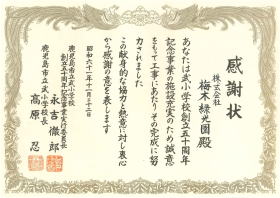 感謝状
株式会社
梅木緑光園殿
あなたは武小学校創立五十周年
記念事業の施設充実のため誠意
をもって工事にあたりその完成に努
力されました
この献身的な協力と熱意に対し衷心
から感謝の意を表します
昭和六十一年十一月二十二日
鹿児島市立武小学校
創立五十周年記念事業実行委員長
永吉徹郎
鹿児島市立武小学校長
高原忍